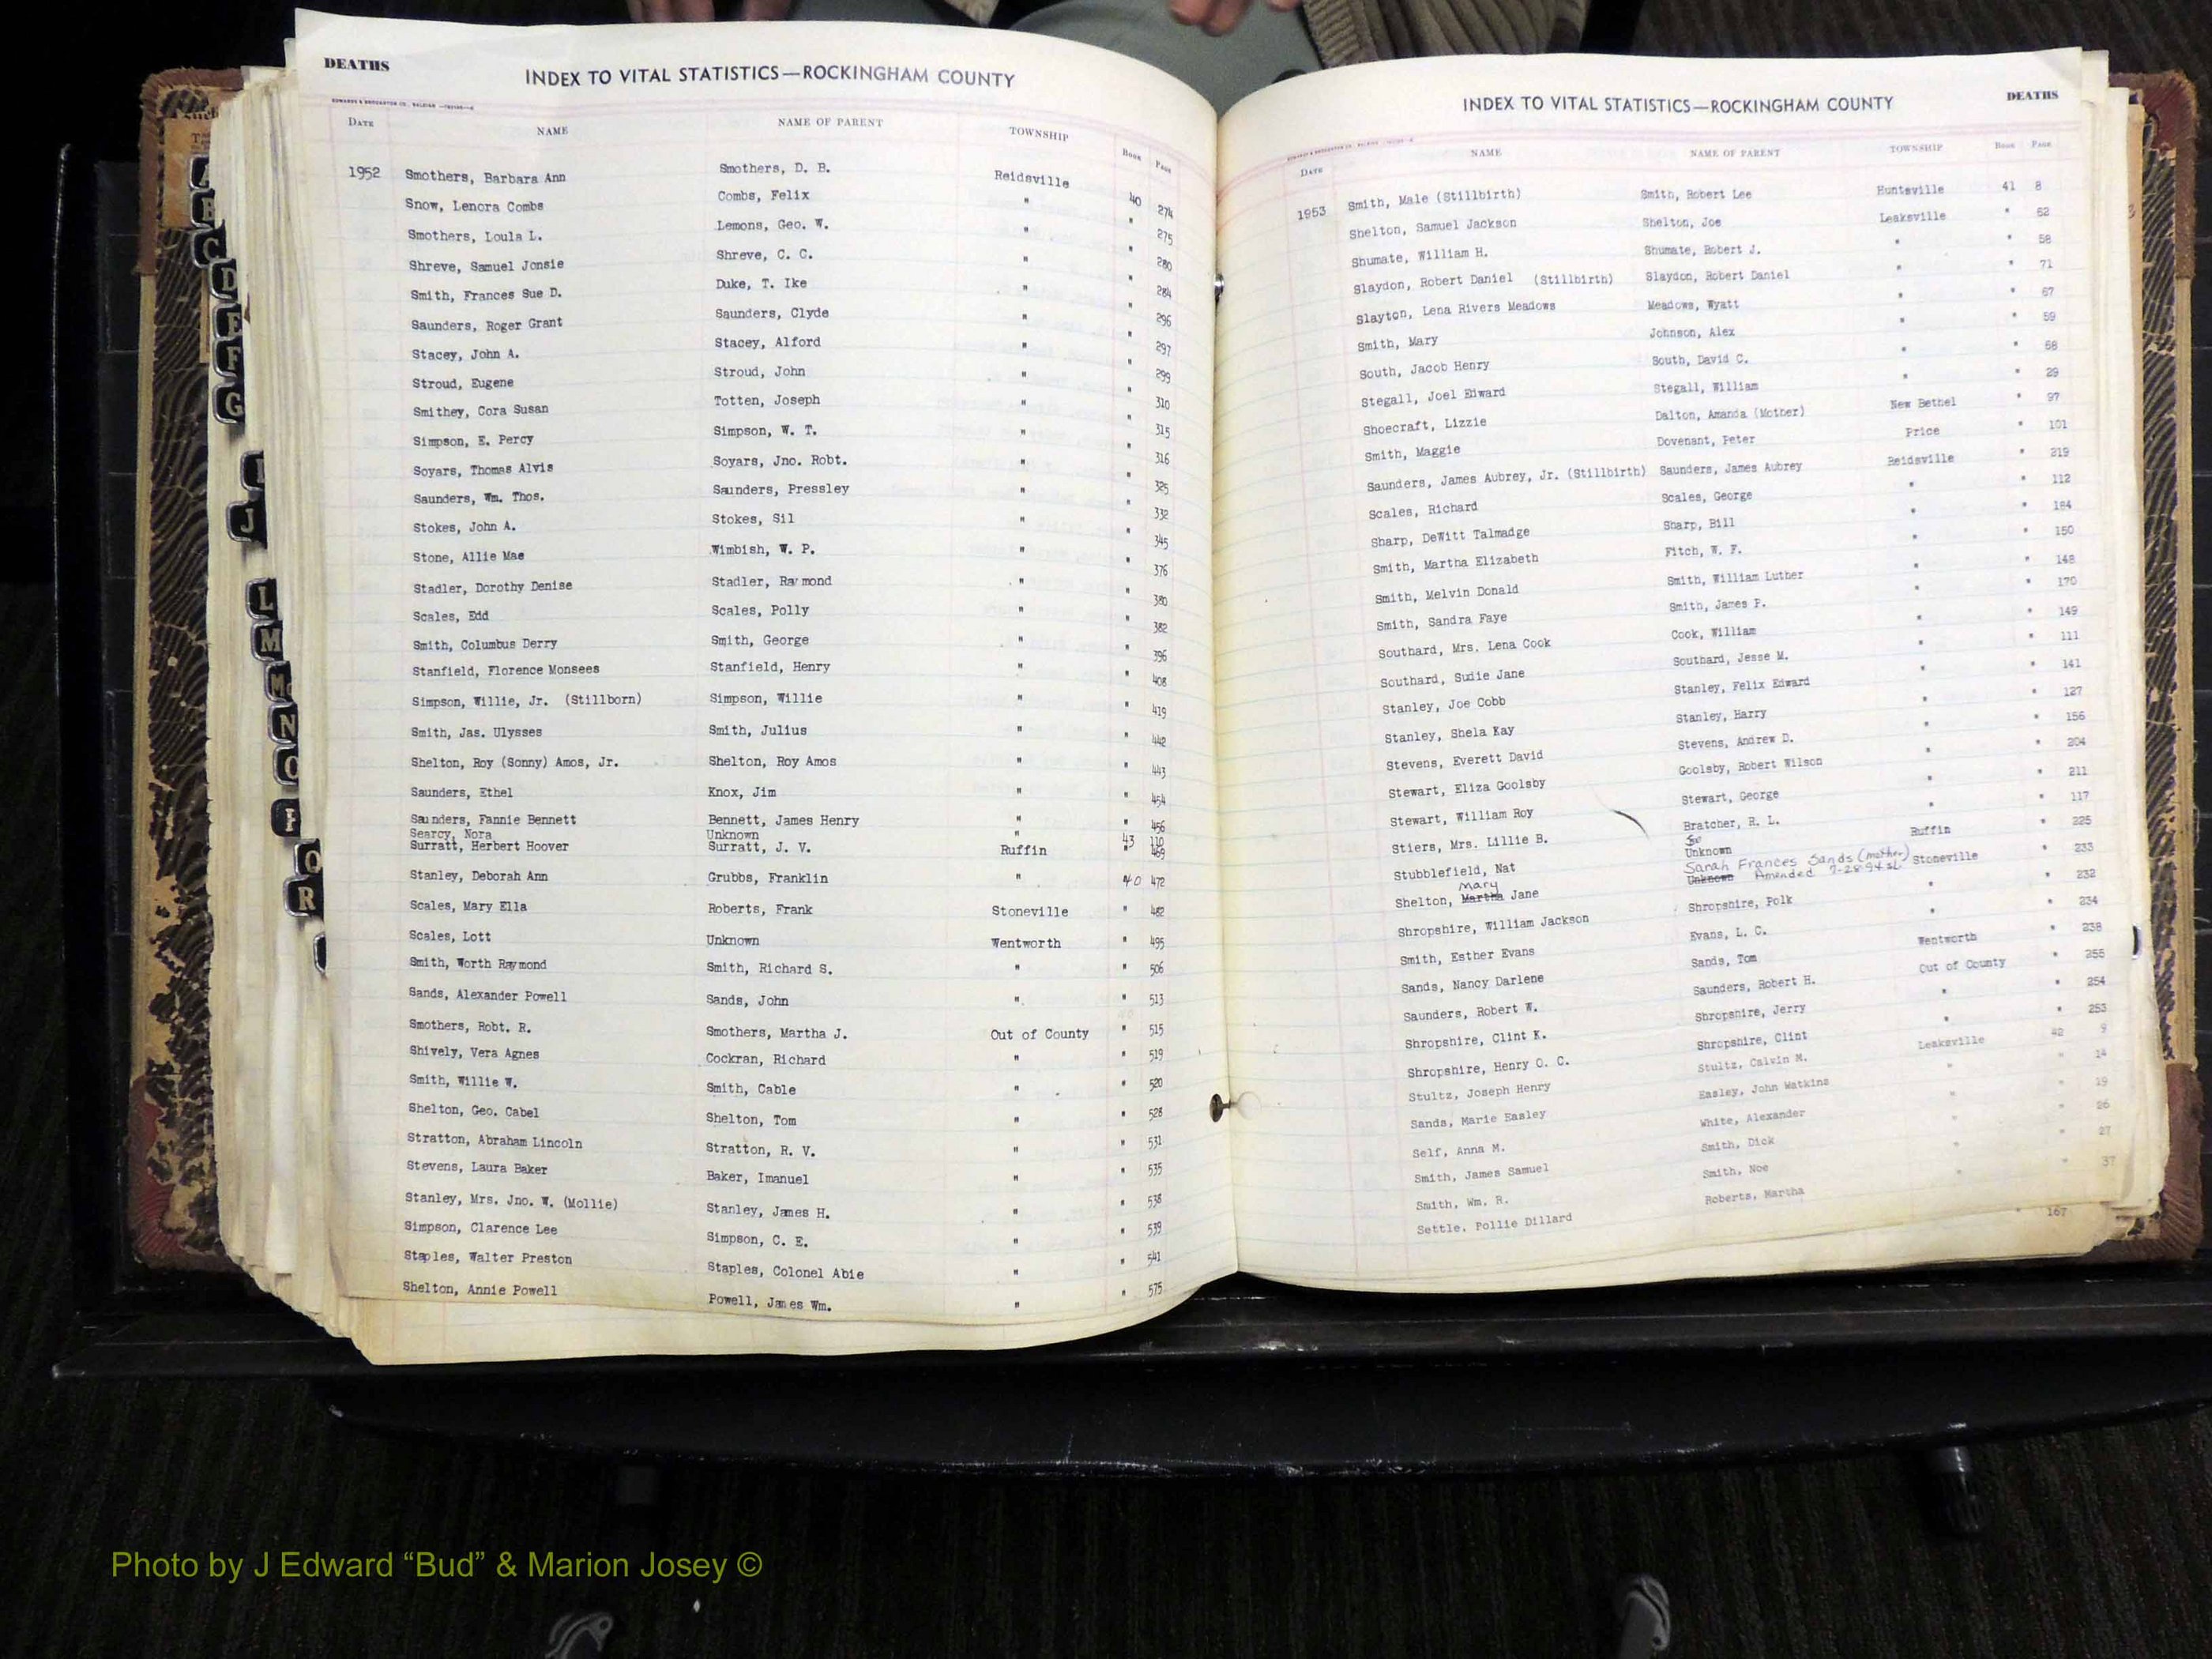 DEATHS
INDEX TO VITAL STATISTICS—ROCKINGHAM COUNTY
DATE NAME NAME OF PARENT TOWNSHIP Book Page
1952 Smothers, Barbara Ann Smothers, D. B. Reidsville 40 274
Snow, Lenora Combs Combs, Felix " " 275
Smothers, Loula L. Lemons, Geo. W. " " 280
Shreve, Samuel Jonsie Shreve, C. C. " " 284
Smith, Frances Sue D. Duke, T. Ike " " 296
Saunders, Roger Grant Saunders, Clyde " " 297
Stacey, John A. Stacey, Alford " " 299
Stroud, Eugene Stroud, John " " 310
Smithey, Cora Susan Totten, Joseph " " 315
Simpson, E. Percy Simpson, W. T. " " 316
Soyars, Thomas Alvis Soyars, Jno. Robt. " " 325
Saunders, Wm. Thos. Saunders, Pressley " " 332
Stokes, John A. Stokes, Sil " " 345
Stone, Allie Mae Wimbish, W. P. " " 376
Stadler, Dorothy Denise Stadler, Raymond " " 380
Scales, Edd Scales, Polly " " 382
Smith, Columbus Derry Smith, George " " 396
Stanfield, Florence Monsees Stanfield, Henry " " 408
Simpson, Willie, Jr. (Stillborn) Simpson, Willie " " 419
Smith, Jas. Ulysses Smith, Julius " " 442
Shelton, Roy (Sonny) Amos, Jr. Shelton, Roy Amos " " 443
Saunders, Ethel Knox, Jim " " 454
Saunders, Fannie Bennett Bennett, James Henry " " 456
Searcy, Nora Unknown " 43 110
Surratt, Herbert Hoover Surratt, J. V. Ruffin " 469
Stanley, Deborah Ann Grubbs, Franklin " 40 472
Scales, Mary Ella Roberts, Frank Stoneville " 482
Scales, Lott Unknown Wentworth " 495
Smith, Worth Raymond Smith, Richard S. " " 506
Sands, Alexander Powell Sands, John " " 513
Smothers, Robt. R. Smothers, Martha J. Out of County " 515
Shively, Vera Agnes Cockran, Richard " " 519
Smith, Willie W. Smith, Cable " " 520
Shelton, Geo. Cabel Shelton, Tom " " 528
Stratton, Abraham Lincoln Stratton, R. V. " " 531
Stevens, Laura Baker Baker, Imanuel " " 535
Stanley, Mrs. Jno. W. (Mollie) Stanley, James H. " " 538
Simpson, Clarence Lee Simpson, C. E. " " 539
Staples, Walter Preston Staples, Colonel Abie " " 541
Shelton, Annie Powell Powell, James Wm. " " 575
A
B
C
D
E
F
G
I
J
L
M
Mc
N
O
P
Q
R
DEATHS
INDEX TO VITAL STATISTICS—ROCKINGHAM COUNTY
DATE NAME NAME OF PARENT TOWNSHIP Book Page
1953 Smith, Male (Stillbirth) Smith, Robert Lee Huntsville 41 8
Shelton, Samuel Jackson Shelton, Joe Leaksville " 62
Shumate, William H. Shumate, Robert J. " " 58
Slaydon, Robert Daniel (Stillbirth) Slaydon, Robert Daniel " " 71
Slayton, Lena Rivers Meadows Meadows, Wyatt " " 67
Smith, Mary Johnson, Alex " " 59
South, Jacob Henry South, David C. " " 68
Stegall, Joel Edward Stegall, William " " 29
Shoecraft, Lizzie Dalton, Amanda (Mother) New Bethel " 97
Smith, Maggie Dovenant, Peter Price " 101
Saunders, James Aubrey, Jr. (Stillbirth) Saunders, James Aubrey Reidsville " 219
Scales, Richard Scales, George " " 112
Sharp, DeWitt Talmadge Sharp, Bill " " 184
Smith, Martha Elizabeth Fitch, W. F. " " 150
Smith, Melvin Donald Smith, William Luther " " 148
Smith, Sandra Faye Smith, James P. " " 170
Southard, Mrs. Lena Cook Cook, William " " 149
Southard, Sudie Jane Southard, Jesse M. " " 111
Stanley, Joe Cobb Stanley, Felix Edward " " 141
Stanley, Shela Kay Stanley, Harry " " 127
Stevens, Everett David Stevens, Andrew D. " " 156
Stewart, Eliza Goolsby Goolsby, Robert Wilson " " 204
Stewart, William Roy Stewart, George " " 211
Stiers, Mrs. Lillie B. Bratcher, R. L. " " 117
Stubblefield, Nat Unknown Ruffin " 225
Mary Sarah Frances Sands (mother)
Shelton, Martha Jane Unknown Amended 7-28-94 SL Stoneville " 233
Shropshire, William Jackson Shropshire, Polk " " 232
Smith, Esther Evans Evans, L. C. " " 234
Sands, Nancy Darlene Sands, Tom Wentworth " 238
Saunders, Robert W. Saunders, Robert H. Out of County " 255
Shropshire, Clint K. Shropshire, Jerry " " 254
Shropshire, Henry O. C. Shropshire, Clint " " 253
Stultz, Joseph Henry Stultz, Calvin M. Leaksville 42 9
Sands, Marie Easley Easley, John Watkins " " 14
Self, Anna M. White, Alexander " " 19
Smith, James Samuel Smith, Dick " " 26
Smith, Wm. R. Smith, Noe " " 27
Settle, Pollie Dillard Roberts, Martha " " 37
" 167
Photo by J Edward “Bud” & Marion Josey ©